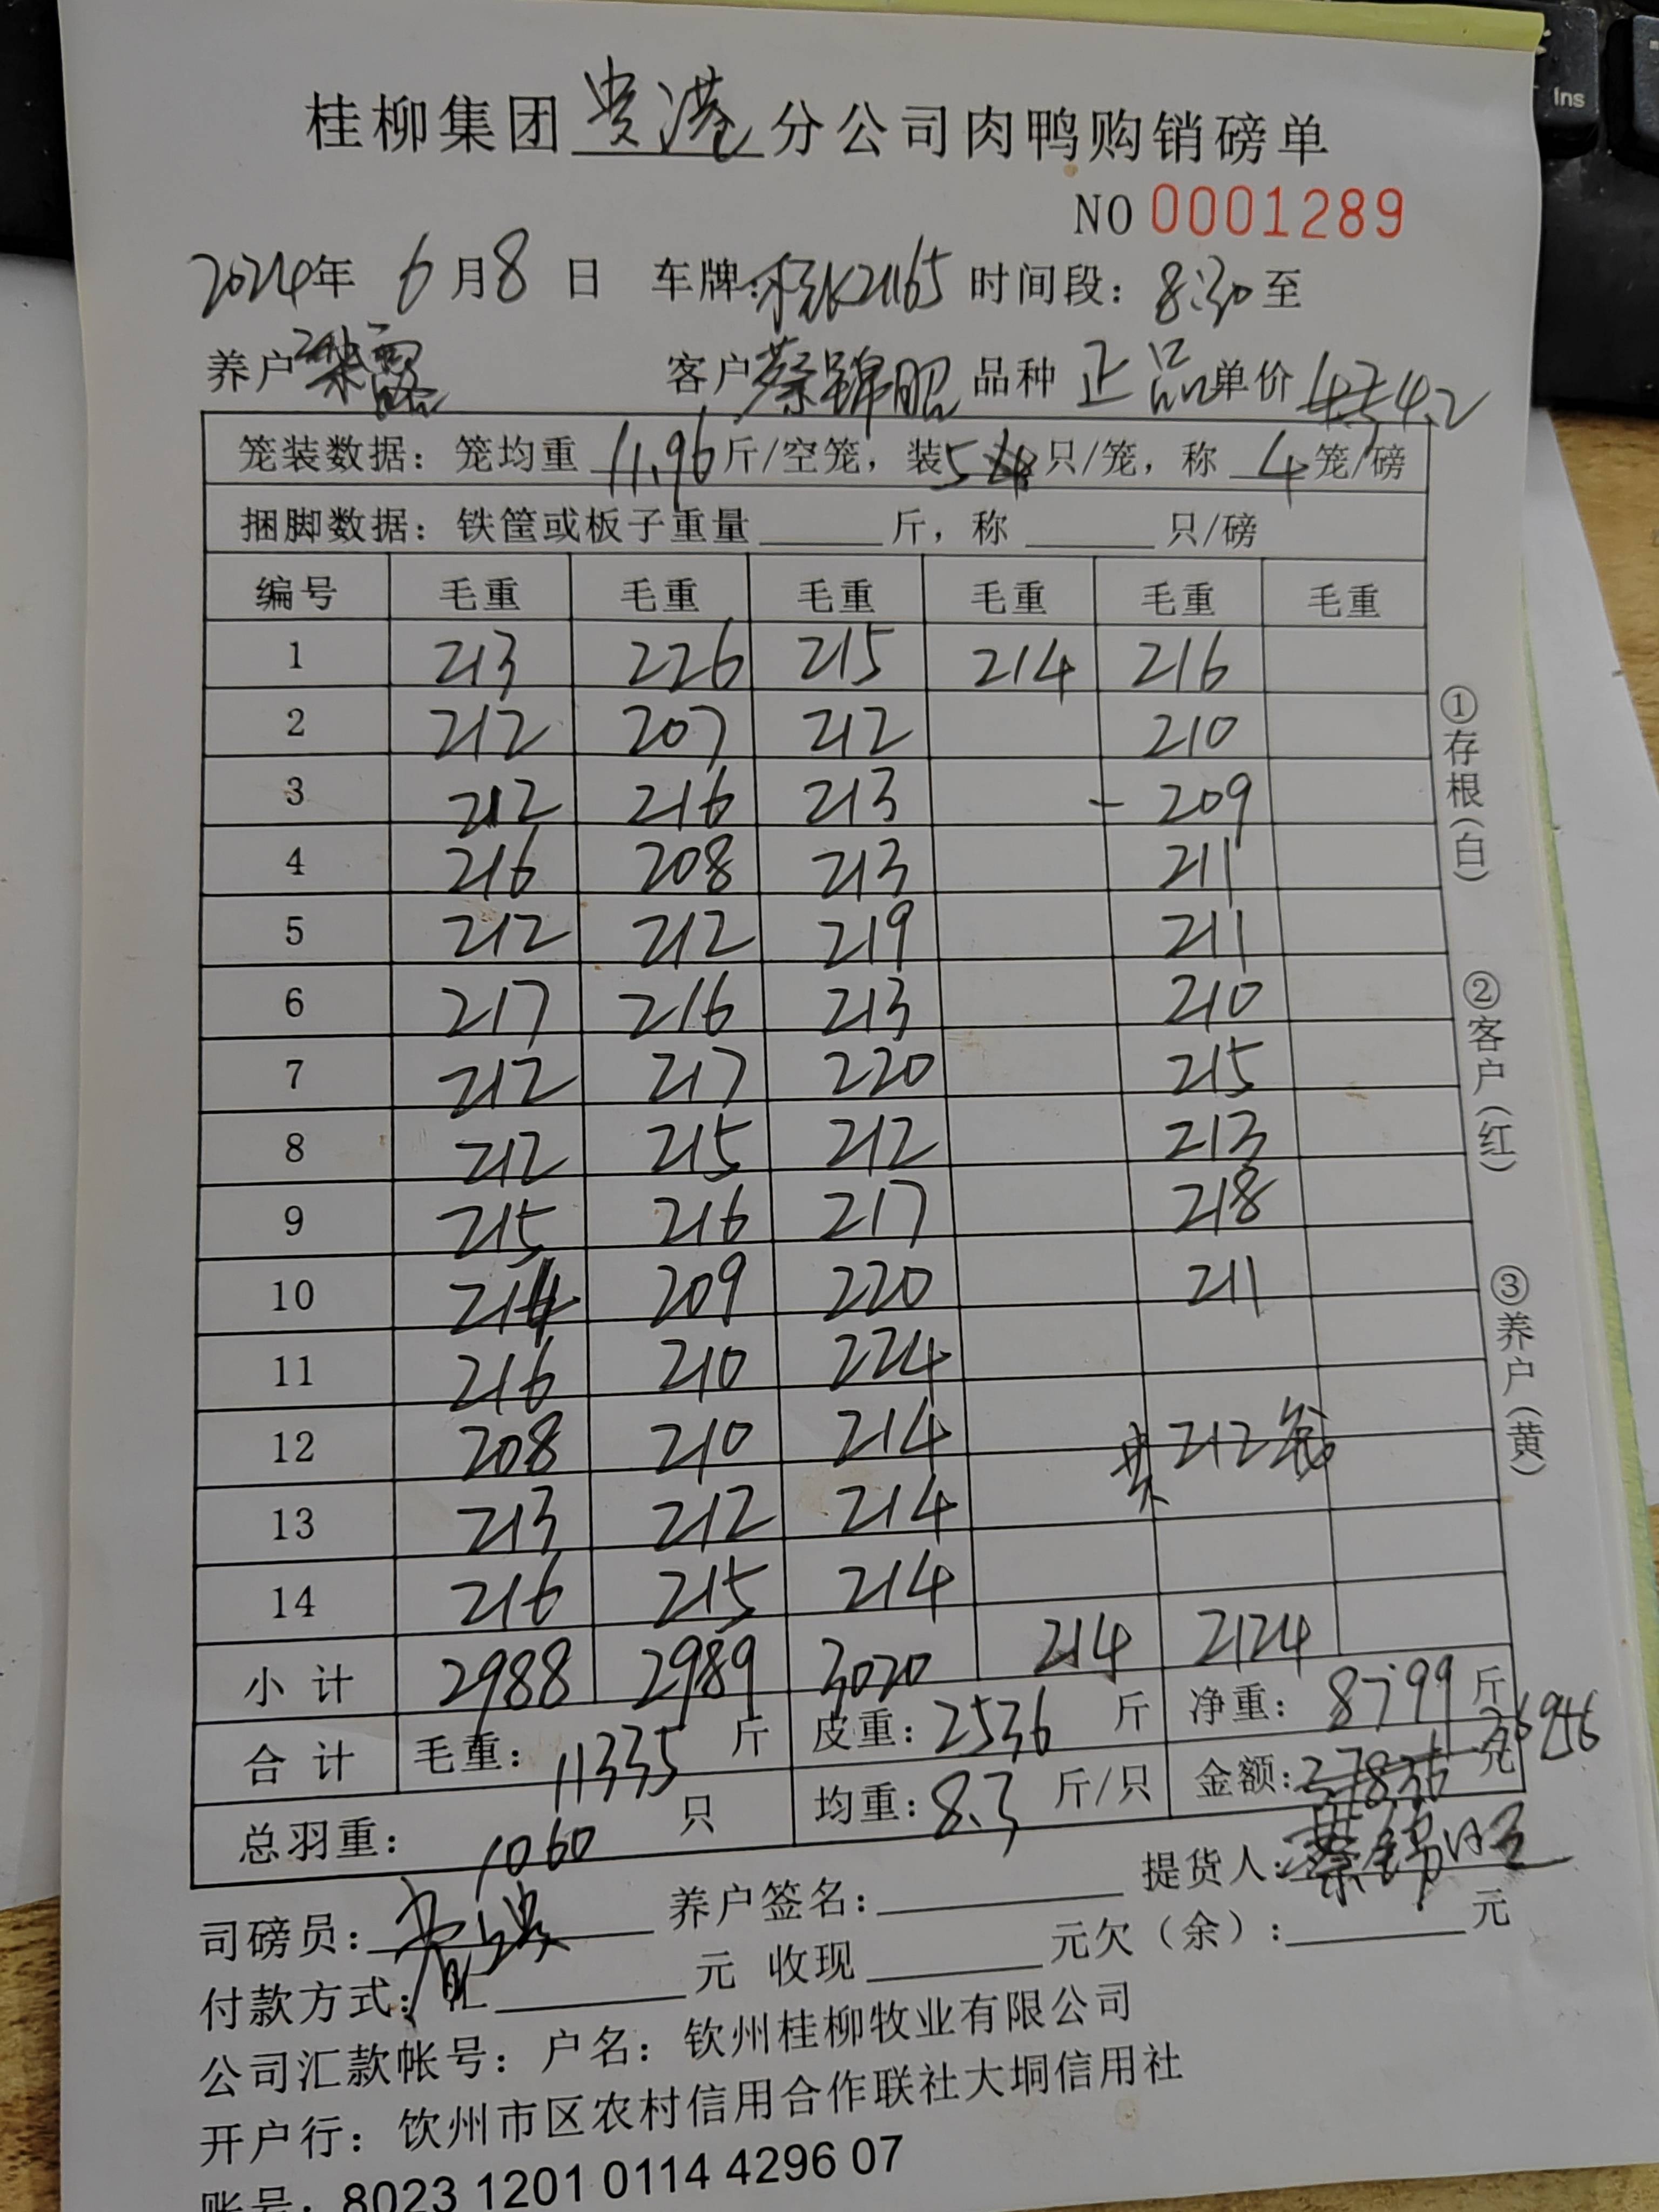 桂柳集团贵港分公司肉鸭购销磅单
NO 0001289
2024年 6月8日 车牌: 2165 时间段: 8:30至
养户 露 客户 蔡锦昭 品种 正品 单价 4.2
笼装数据: 笼均重 11.96 斤/空笼, 装5只/笼, 称 4 笼/磅
捆脚数据: 铁筐或板子重量 斤, 称 只/磅
编号 毛重 毛重 毛重 毛重 毛重 毛重
1 213 226 215 214 216
2 212 207 212 210
3 212 216 213 - 209
4 216 208 213 211
5 212 212 219 211
6 217 216 213 210
7 212 217 220 215
8 212 215 212 213
9 215 216 217 218
10 214 209 220 211
11 216 210 224
12 208 210 214 共212笼
13 213 212 214
14 216 215 214
小计 2988 2989 3020 214 2124
合计 毛重: 11335 斤 皮重: 2536 斤 净重: 8799 斤
总羽重: 1060 只 均重: 8.3 斤/只 金额: 37836 元 36956
司磅员: 养户签名: 提货人: 蔡锦昭
付款方式: 汇 元 收现 元欠(余): 元
公司汇款帐号: 户名: 钦州桂柳牧业有限公司
开户行: 钦州市区农村信用合作联社大垌信用社
账号: 8023 1201 0114 4296 07
①存根(白) ②客户(红) ③养户(黄)
Ins